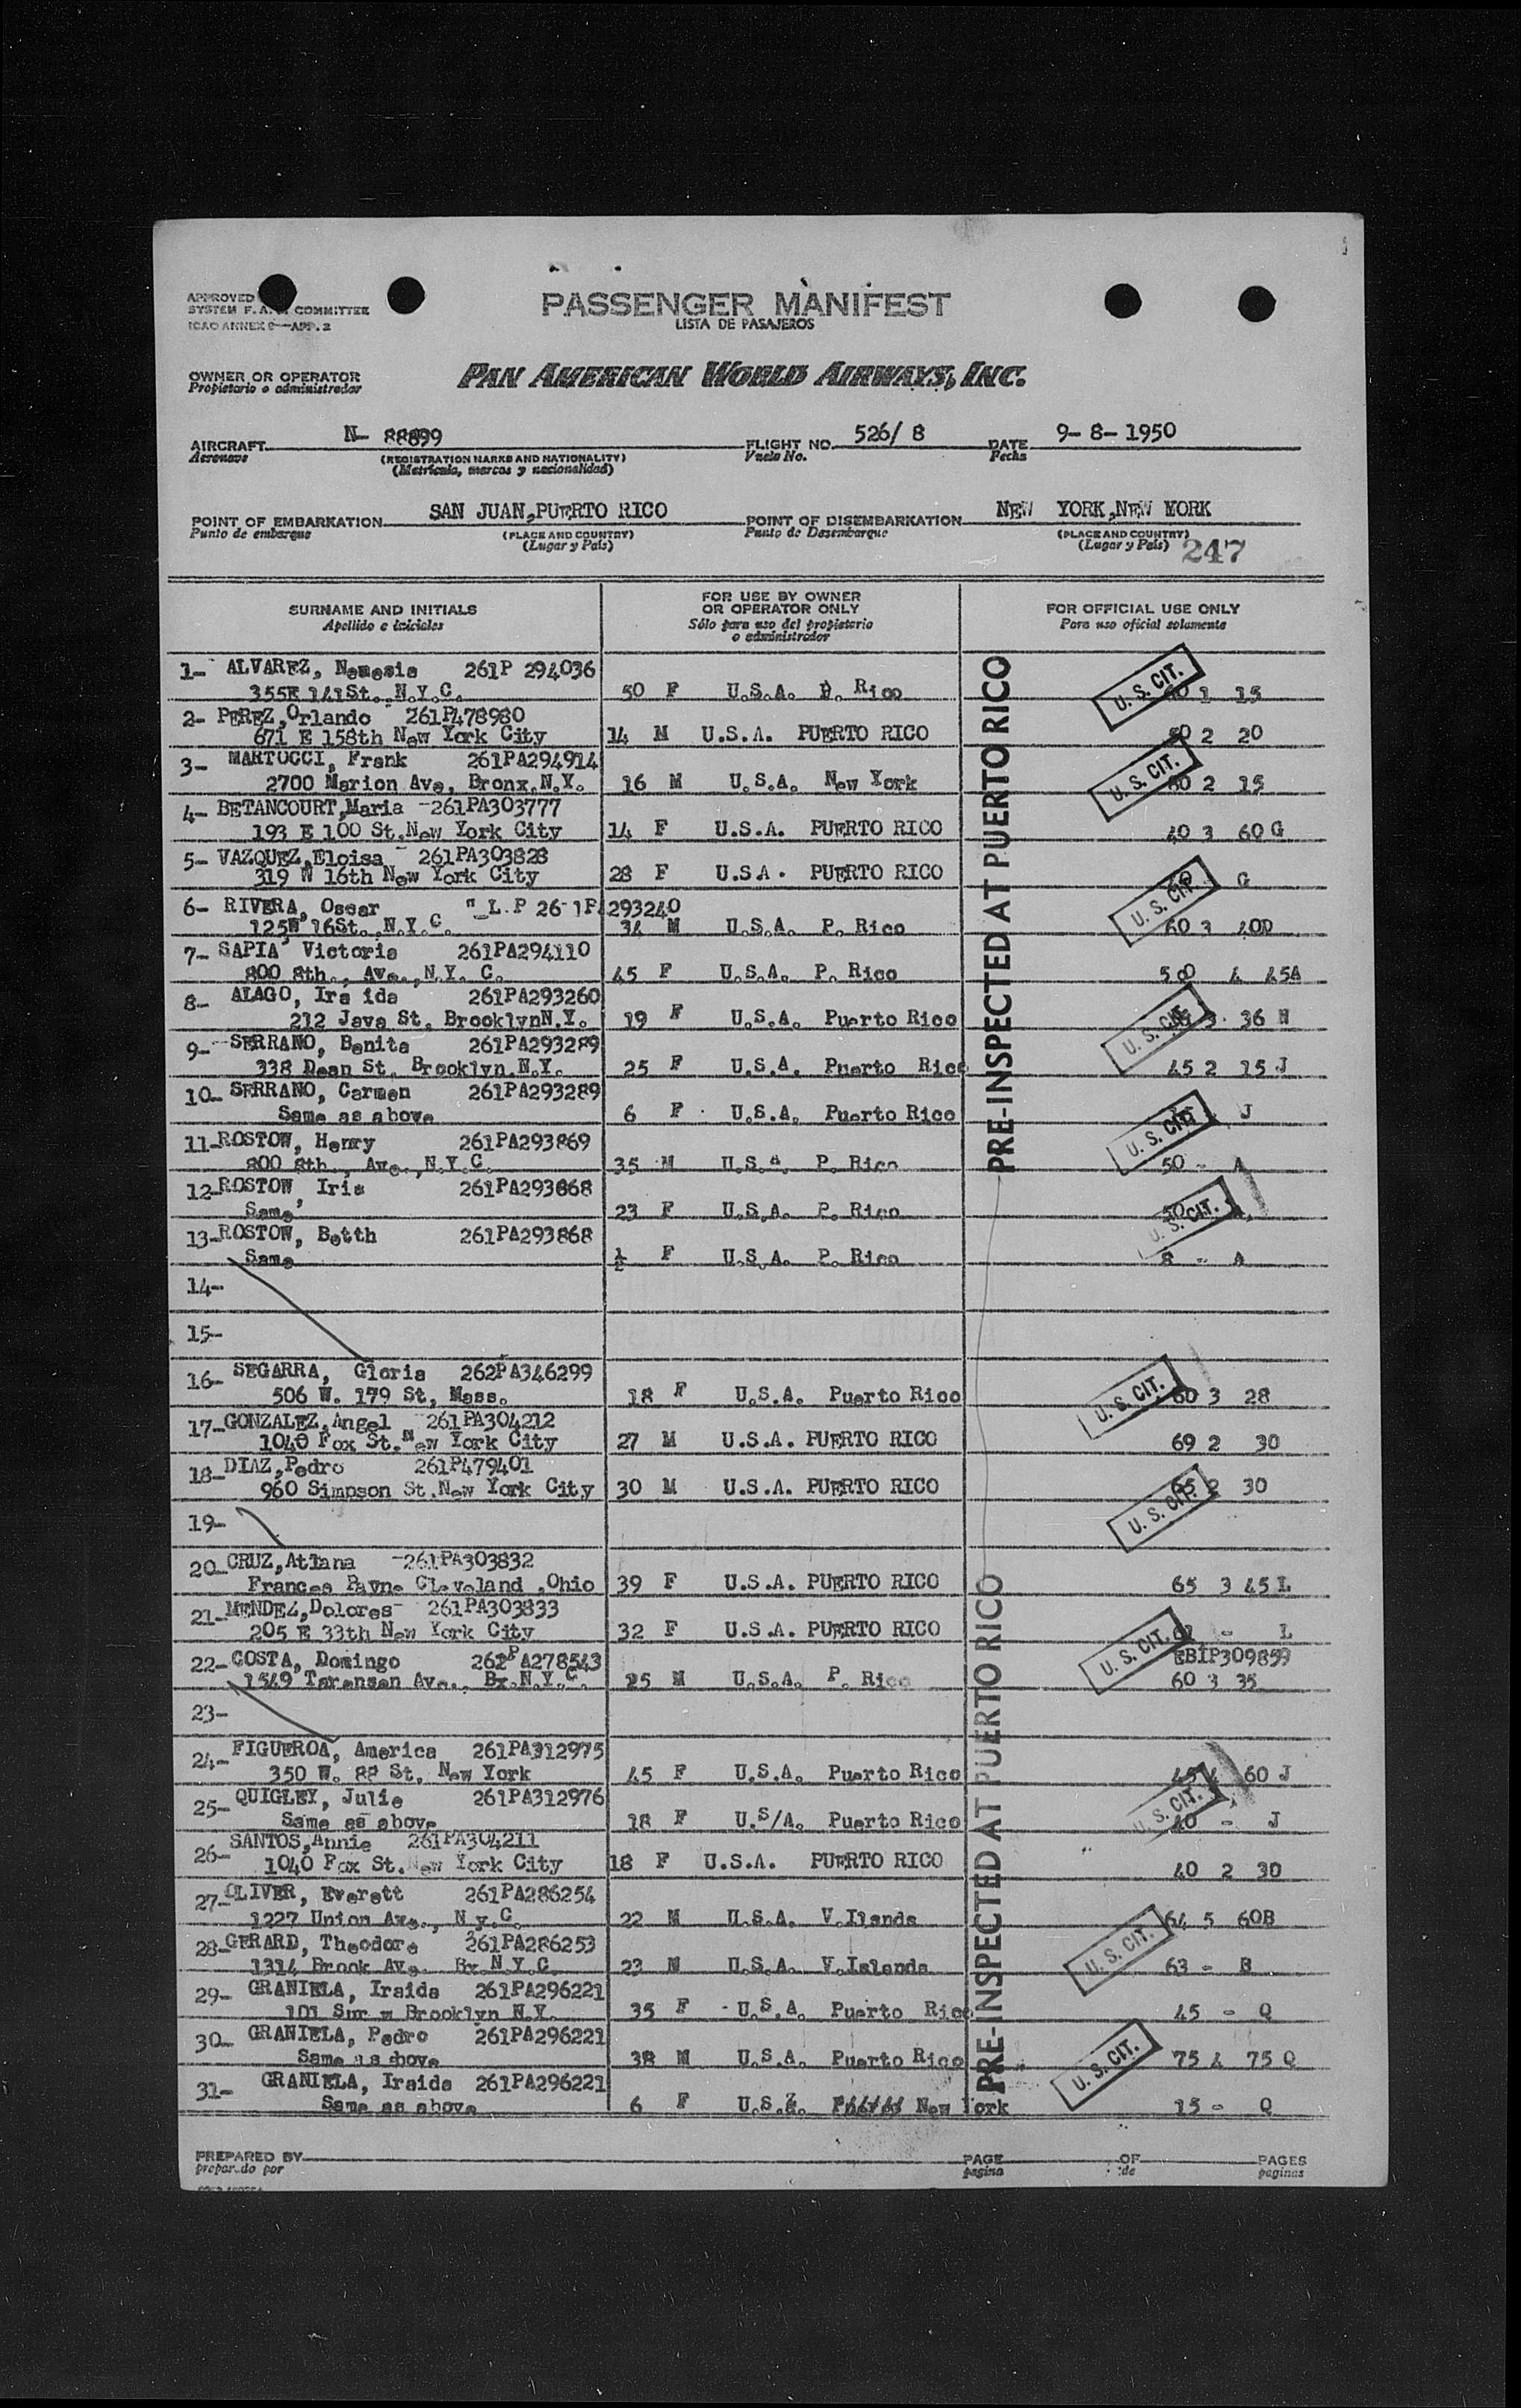 APPROVED
SYSTEM F. A. COMMITTEE
ICAO ANNEX 9—APP. 2
PASSENGER MANIFEST
LISTA DE PASAJEROS
OWNER OR OPERATOR
Propietario o administrador
PAN AMERICAN WORLD AIRWAYS, INC.
AIRCRAFT N- 88899 FLIGHT NO. 526/ 8 DATE 9- 8- 1950
Aeronave (REGISTRATION MARKS AND NATIONALITY) Vuelo No. Fecha
(Matrícula, marcas y nacionalidad)
POINT OF EMBARKATION SAN JUAN,PUERTO RICO POINT OF DISEMBARKATION NEW YORK,NEW YORK
Punto de embarque (PLACE AND COUNTRY) Punto de Desembarque (PLACE AND COUNTRY)
(Lugar y País) (Lugar y País) 247
SURNAME AND INITIALS FOR USE BY OWNER OR OPERATOR ONLY FOR OFFICIAL USE ONLY
Apellido e iniciales Sólo para uso del propietario o administrador Para uso oficial solamente
PRE-INSPECTED AT PUERTO RICO
1- ALVAREZ, Nemesia 261P 294036
355E 141St., N.Y.C. 50 F U.S.A. P. Rico U. S. CIT. 1 15
2- PEREZ,Orlando 261P478980
671 E 158th New York City 14 M U.S.A. PUERTO RICO 2 20
3- MARTOCCI, Frank 261PA294914
2700 Marion Ave, Bronx,N.Y. 16 M U.S.A. New York U. S. CIT. 60 2 15
4- BETANCOURT,Maria -261PA303777
193 E 100 St.New York City 14 F U.S.A. PUERTO RICO 40 3 60 G
5- VAZQUEZ,Eloisa - 261PA303828
319 W 16th New York City 28 F U.S.A. PUERTO RICO U. S. CIT. G
6- RIVERA, Oscar " L.P 26-1PA293240
125W 16St., N.Y.C. 34 M U.S.A. P. Rico 60 3 40D
7- SAPIA Victoria 261PA294110
800 8th., Ave.,N.Y. C. 45 F U.S.A. P. Rico 50 4 45A
8- ALAGO, Ira ida 261PA293260
212 Java St. BrooklynN.Y. 19 F U.S.A. Puerto Rico U. S. CIT. 3 36 N
9- SERRANO, Benita 261PA293289
338 Dean St. Brooklyn.N.Y. 25 F U.S.A. Puerto Rico 45 2 15 J
10- SERRANO, Carmen 261PA293289
Same as above 6 F U.S.A. Puerto Rico U. S. CIT. J
11-ROSTOW, Henry 261PA293869
800 8th., Ave.,N.Y.C. 35 M U.S.A. P. Rico 50 - A
12-ROSTOW, Iris 261PA293868
Same 23 F U.S.A. P. Rico U. S. CIT.
13-ROSTOW, Betth 261PA293868
Same ½ F U.S.A. P. Rico 8 - A
14-
15-
16- SEGARRA, Gloria 262PA346299
506 W. 179 St, Mass. 18 F U.S.A. Puerto Rico U. S. CIT. 60 3 28
17-GONZALEZ,Angel 261PA304212
1040 Fox St.New York City 27 M U.S.A. PUERTO RICO 69 2 30
18-DIAZ,Pedro 261P479401
960 Simpson St.New York City 30 M U.S.A. PUERTO RICO U. S. CIT. 65 2 30
19-
PRE-INSPECTED AT PUERTO RICO
20-CRUZ,Atlana -261PA303832
Frances Payne Cleveland ,Ohio 39 F U.S.A. PUERTO RICO 65 3 45 L
21-MENDEZ,Dolores- 261PA303833
205 E 33th New York City 32 F U.S.A. PUERTO RICO U. S. CIT. - L
22-COSTA, Domingo 262PA278543 EBIP309859
1549 Taransan Ave., Bx.N.Y.C. 25 M U.S.A. P. Rico 60 3 35
23-
24-FIGUEROA, America 261PA312975
350 W. 88 St. New York 45 F U.S.A. Puerto Rico 60 J
25- QUIGLEY, Julie 261PA312976
Same as above 18 F U.S/A. Puerto Rico U. S. CIT. 40 - J
26-SANTOS,Annie 261PA304211
1040 Fox St.New York City 18 F U.S.A. PUERTO RICO 40 2 30
27-OLIVER, Everett 261PA286254
1227 Union Ave., N.y.C. 22 M U.S.A. V.Ilands 64 5 60B
28-GERARD, Theodore 261PA286253
1314 Brook Ave. Bx.N.Y.C. 23 M U.S.A. V.Islands U. S. CIT. 63 - B
29- GRANIELA, Iraida 261PA296221
101 Sur Brooklyn N.Y. 35 F U.S.A. Puerto Rico 45 - Q
30- GRANIELA, Pedro 261PA296221
Same as above 38 M U.S.A. Puerto Rico U. S. CIT. 75 4 75 Q
31- GRANIELA, Iraida 261PA296221
Same as above 6 F U.S.A. New York 15 - Q
PREPARED BY PAGE OF PAGES
preparado por pagina de paginas